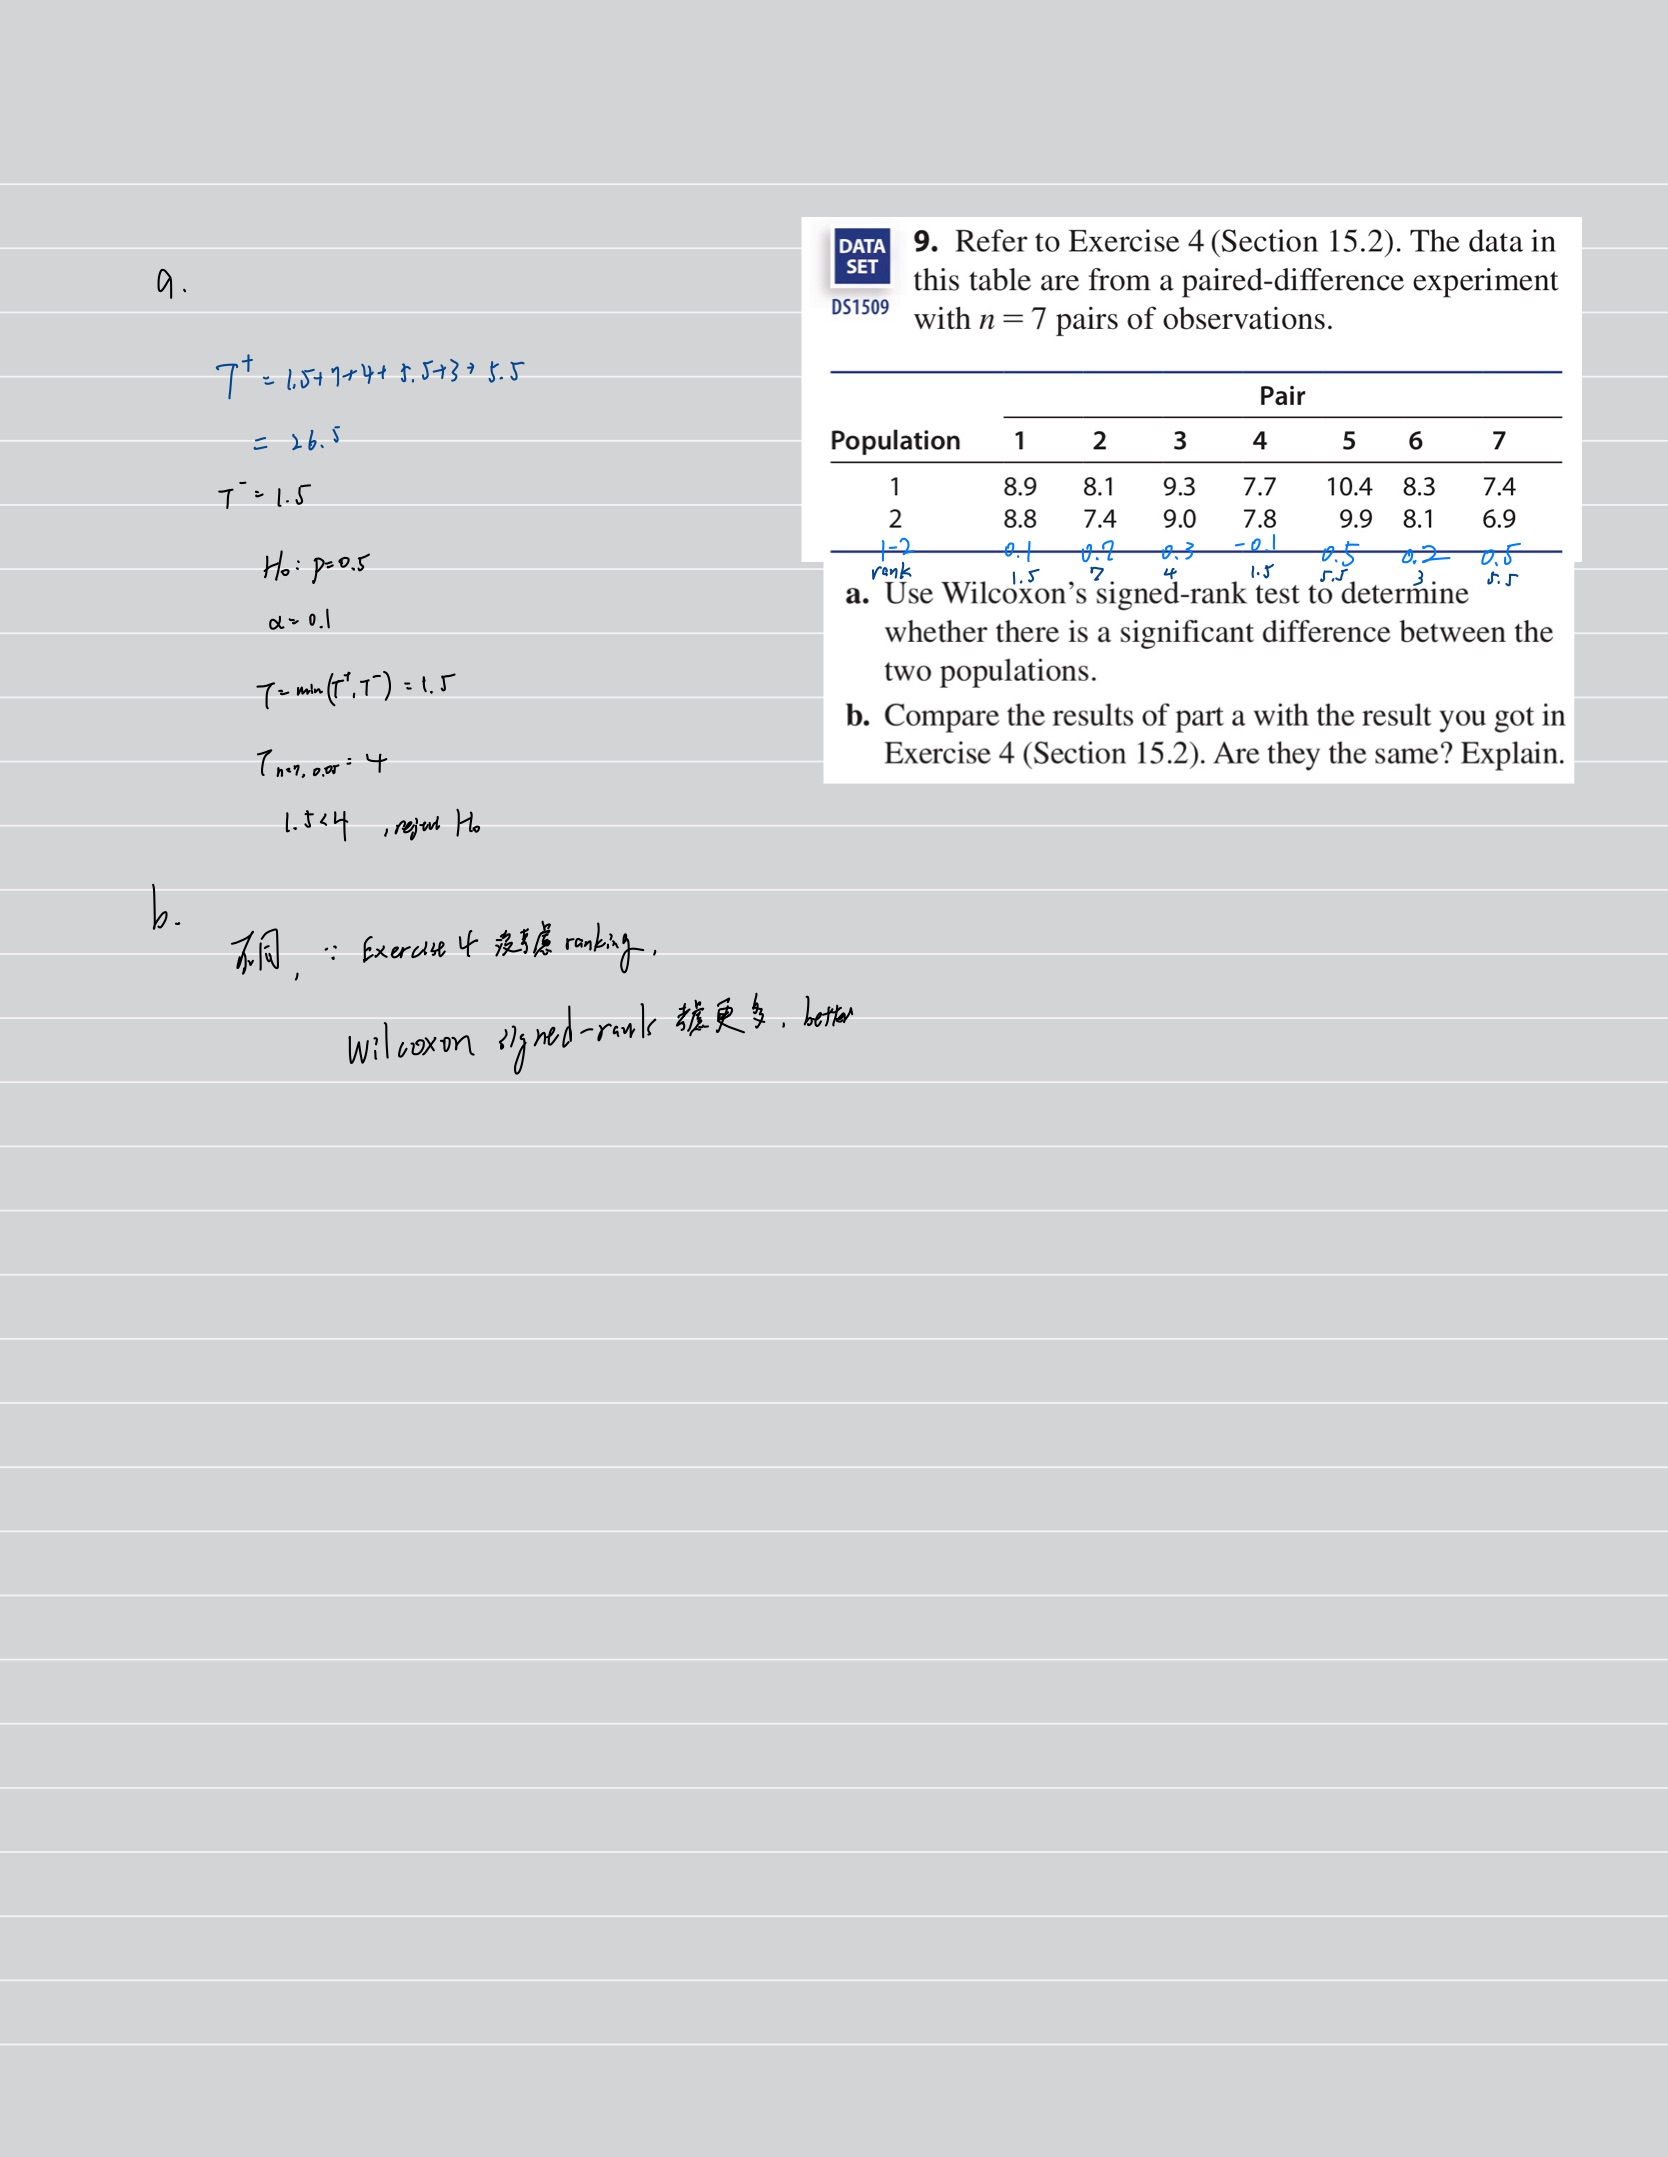 9. Refer to Exercise 4 (Section 15.2). The data in
this table are from a paired-difference experiment
with n = 7 pairs of observations.
DATA
SET
DS1509
Pair
Population 1 2 3 4 5 6 7
1 8.9 8.1 9.3 7.7 10.4 8.3 7.4
2 8.8 7.4 9.0 7.8 9.9 8.1 6.9
1-2 0.1 0.7 0.3 -0.1 0.5 0.2 0.5
rank 1.5 7 4 1.5 5.5 3 5.5
a. Use Wilcoxon's signed-rank test to determine
whether there is a significant difference between the
two populations.
b. Compare the results of part a with the result you got in
Exercise 4 (Section 15.2). Are they the same? Explain.
a.
T⁺ = 1.5+7+4+5.5+3+5.5
= 26.5
T⁻ = 1.5
H₀: p=0.5
α = 0.1
T = min(T⁺, T⁻) = 1.5
T n=7, 0.05 = 4
1.5<4 , reject H₀
b.
不同, ∵ Exercise 4 沒考慮 ranking,
Wilcoxon signed-rank 考慮更多, better